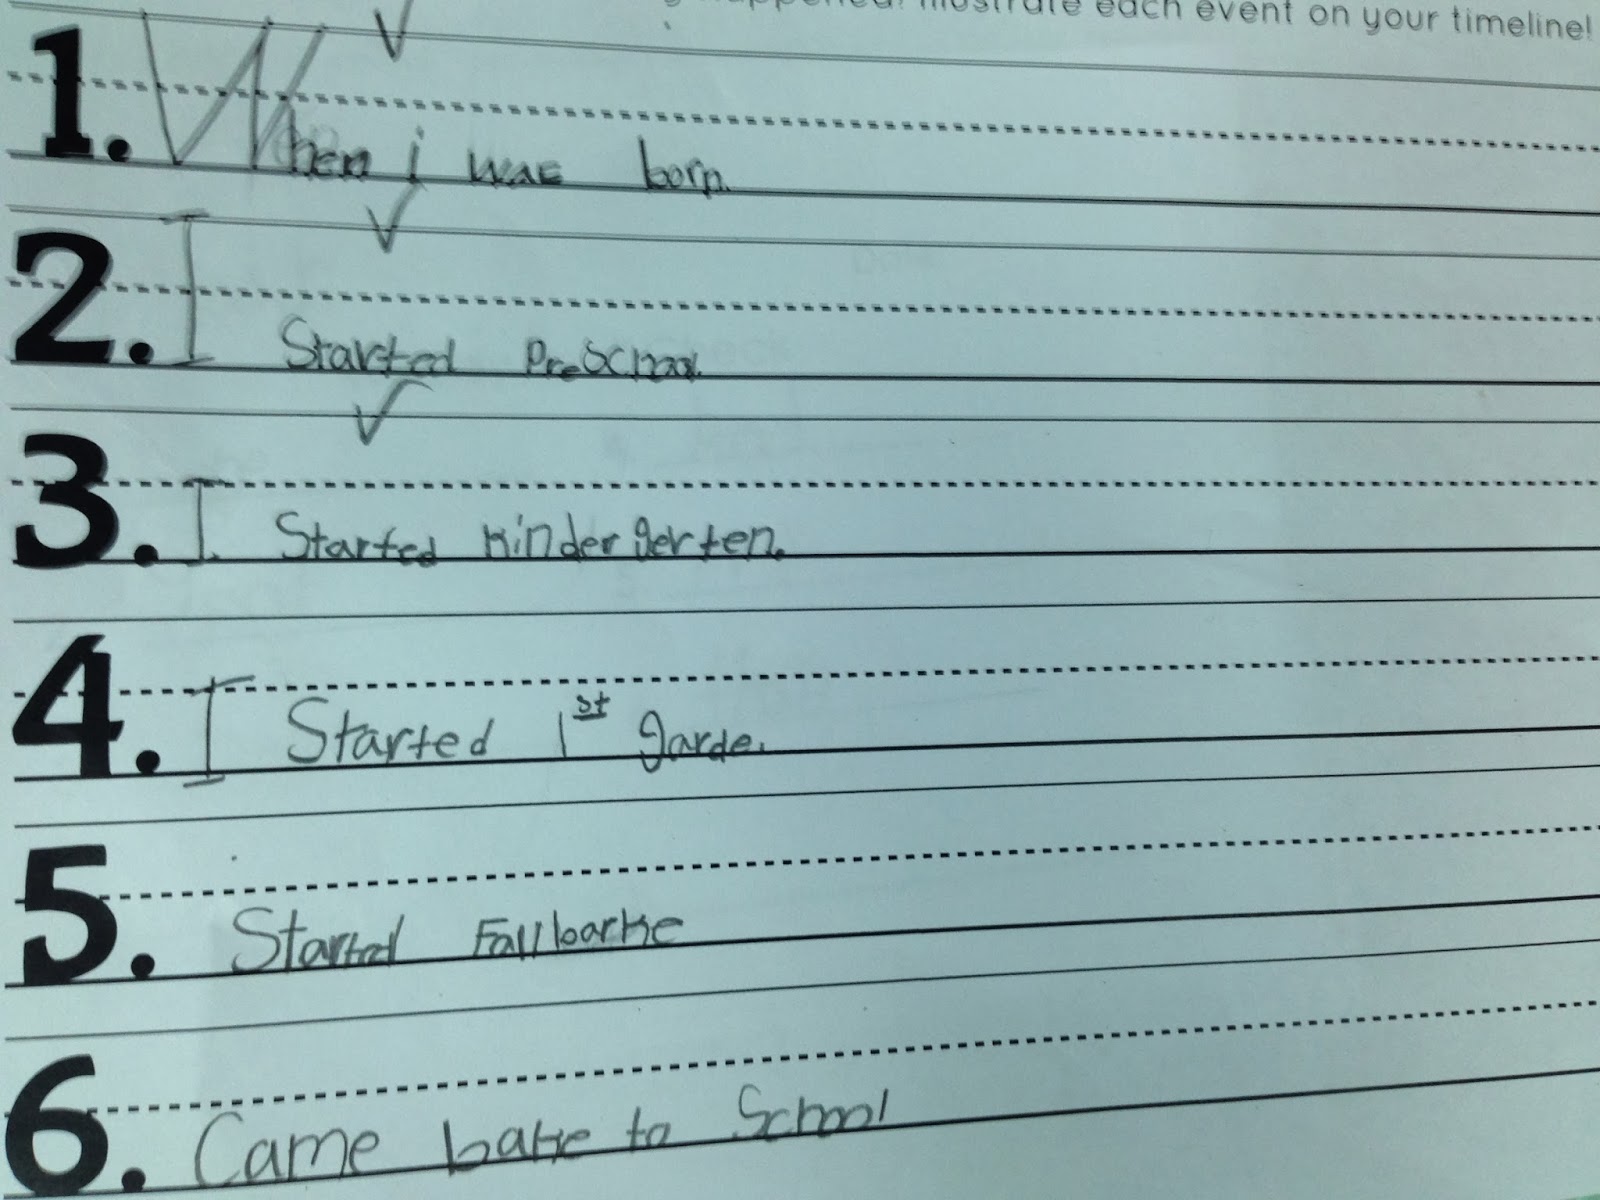 happened! Illustrate each event on your timeline!
1. When i was born.
2. I Started PreSchool.
3. I Started kindergerten.
4. I Started 1st garde.
5. Started Fallbarke
6. Came bake to School